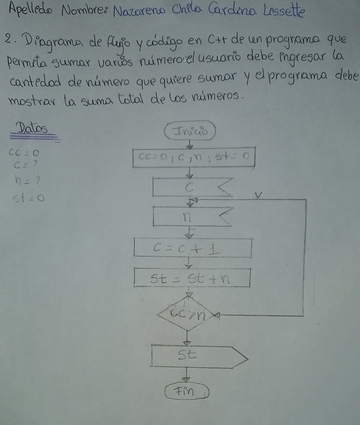 Apellido Nombre: Nazareno Chila Cardona Lissette
2. Diagrama de flujo y código en C++ de un programa que
permita sumar varios número el usuario debe ingresar la
cantidad de número que quiere sumar y el programa debe
mostrar la suma total de los números.
Datos
cc=0
c=?
n=?
st=0
Inicio
cc=0, c, n, st=0
c
V
n
c = c + 1
st = st + n
st
Fin